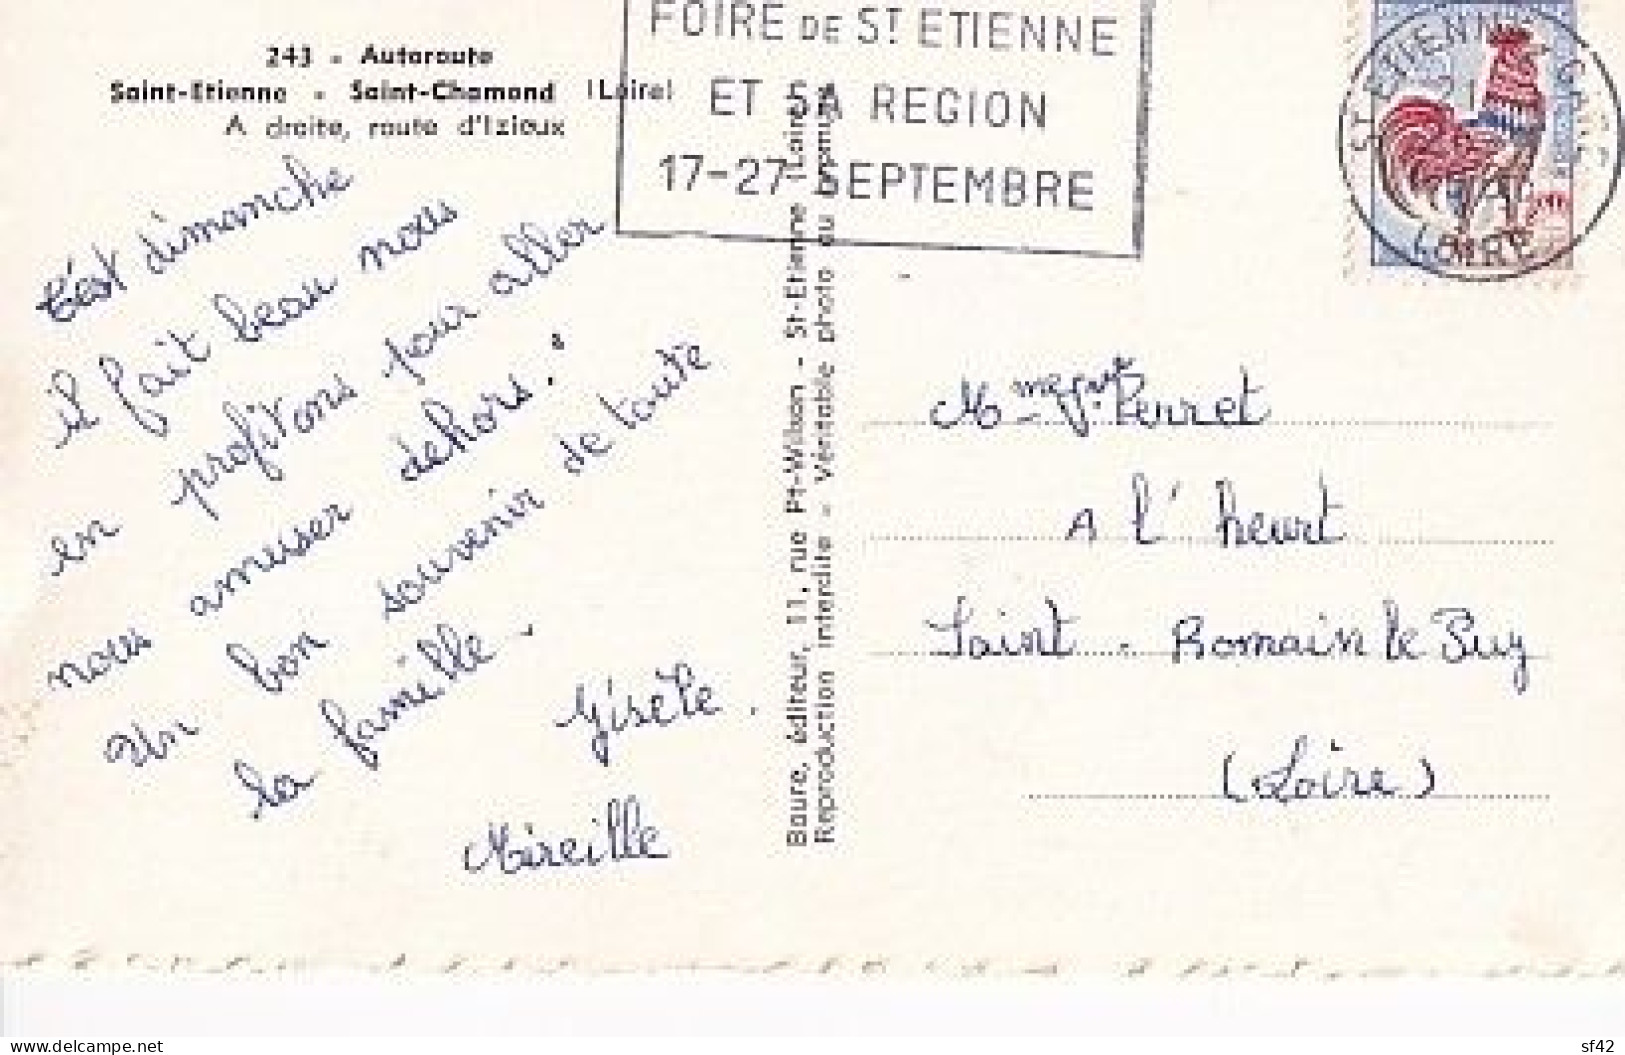 243 - Autoroute
Saint-Etienne - Saint-Chamond (Loire)
A droite, route d'Izieux
C'est dimanche
il fait beau nous
en profitons pour aller
nous amuser dehors!
Un bon souvenir de toute
la famille.
Gisèle.
Mireille
Baure, éditeur, 11, rue Pt-Wilson - St-Etienne (Loire)
Reproduction interdite - Véritable photo au bromure
FOIRE DE ST ETIENNE
ET SA REGION
17-27 SEPTEMBRE
ST ETIENNE GARE
LOIRE
Perret
A l'heurt
Saint - Romain le Puy
(Loire)
www.delcampe.net
sf42